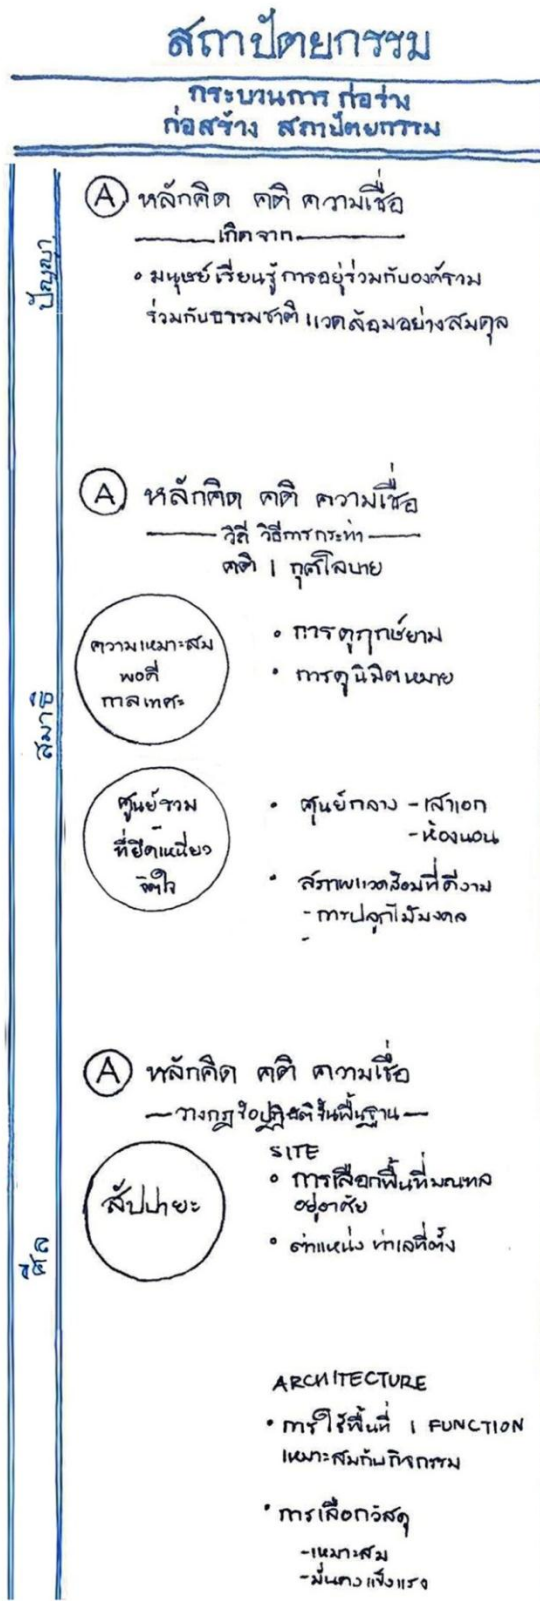 สถาปัตยกรรม
กระบวนการ ก่อร่าง
ก่อสร้าง สถาปัตยกรรม
ปัญญา
A หลักคิด คติ ความเชื่อ
เกิดจาก
• มนุษย์ เรียนรู้ การอยู่ร่วมกับองค์รวม
ร่วมกับธรรมชาติ แวดล้อมอย่างสมดุล
สมาธิ
A หลักคิด คติ ความเชื่อ
วิถี วิธีการกระทำ
คติ | กุศโลบาย
ความเหมาะสม
พอดี
กาลเทศะ
• การดูฤกษ์ยาม
• การดูนิมิตหมาย
ศูนย์รวม
-
ที่ยึดเหนี่ยว
จิตใจ
• ศูนย์กลาง - เสาเอก
- ห้องนอน
• สภาพแวดล้อมที่ดีงาม
- การปลูกไม้มงคล
-
ศีล
A หลักคิด คติ ความเชื่อ
วางกฎ ข้อปฏิบัติขั้นพื้นฐาน
สัปปายะ
SITE
• การเลือกพื้นที่มณฑล
อยู่อาศัย
• ตำแหน่ง ทำเลที่ตั้ง
ARCHITECTURE
• การใช้พื้นที่ | FUNCTION
เหมาะสมกับกิจกรรม
• การเลือกวัสดุ
- เหมาะสม
- มั่นคงแข็งแรง